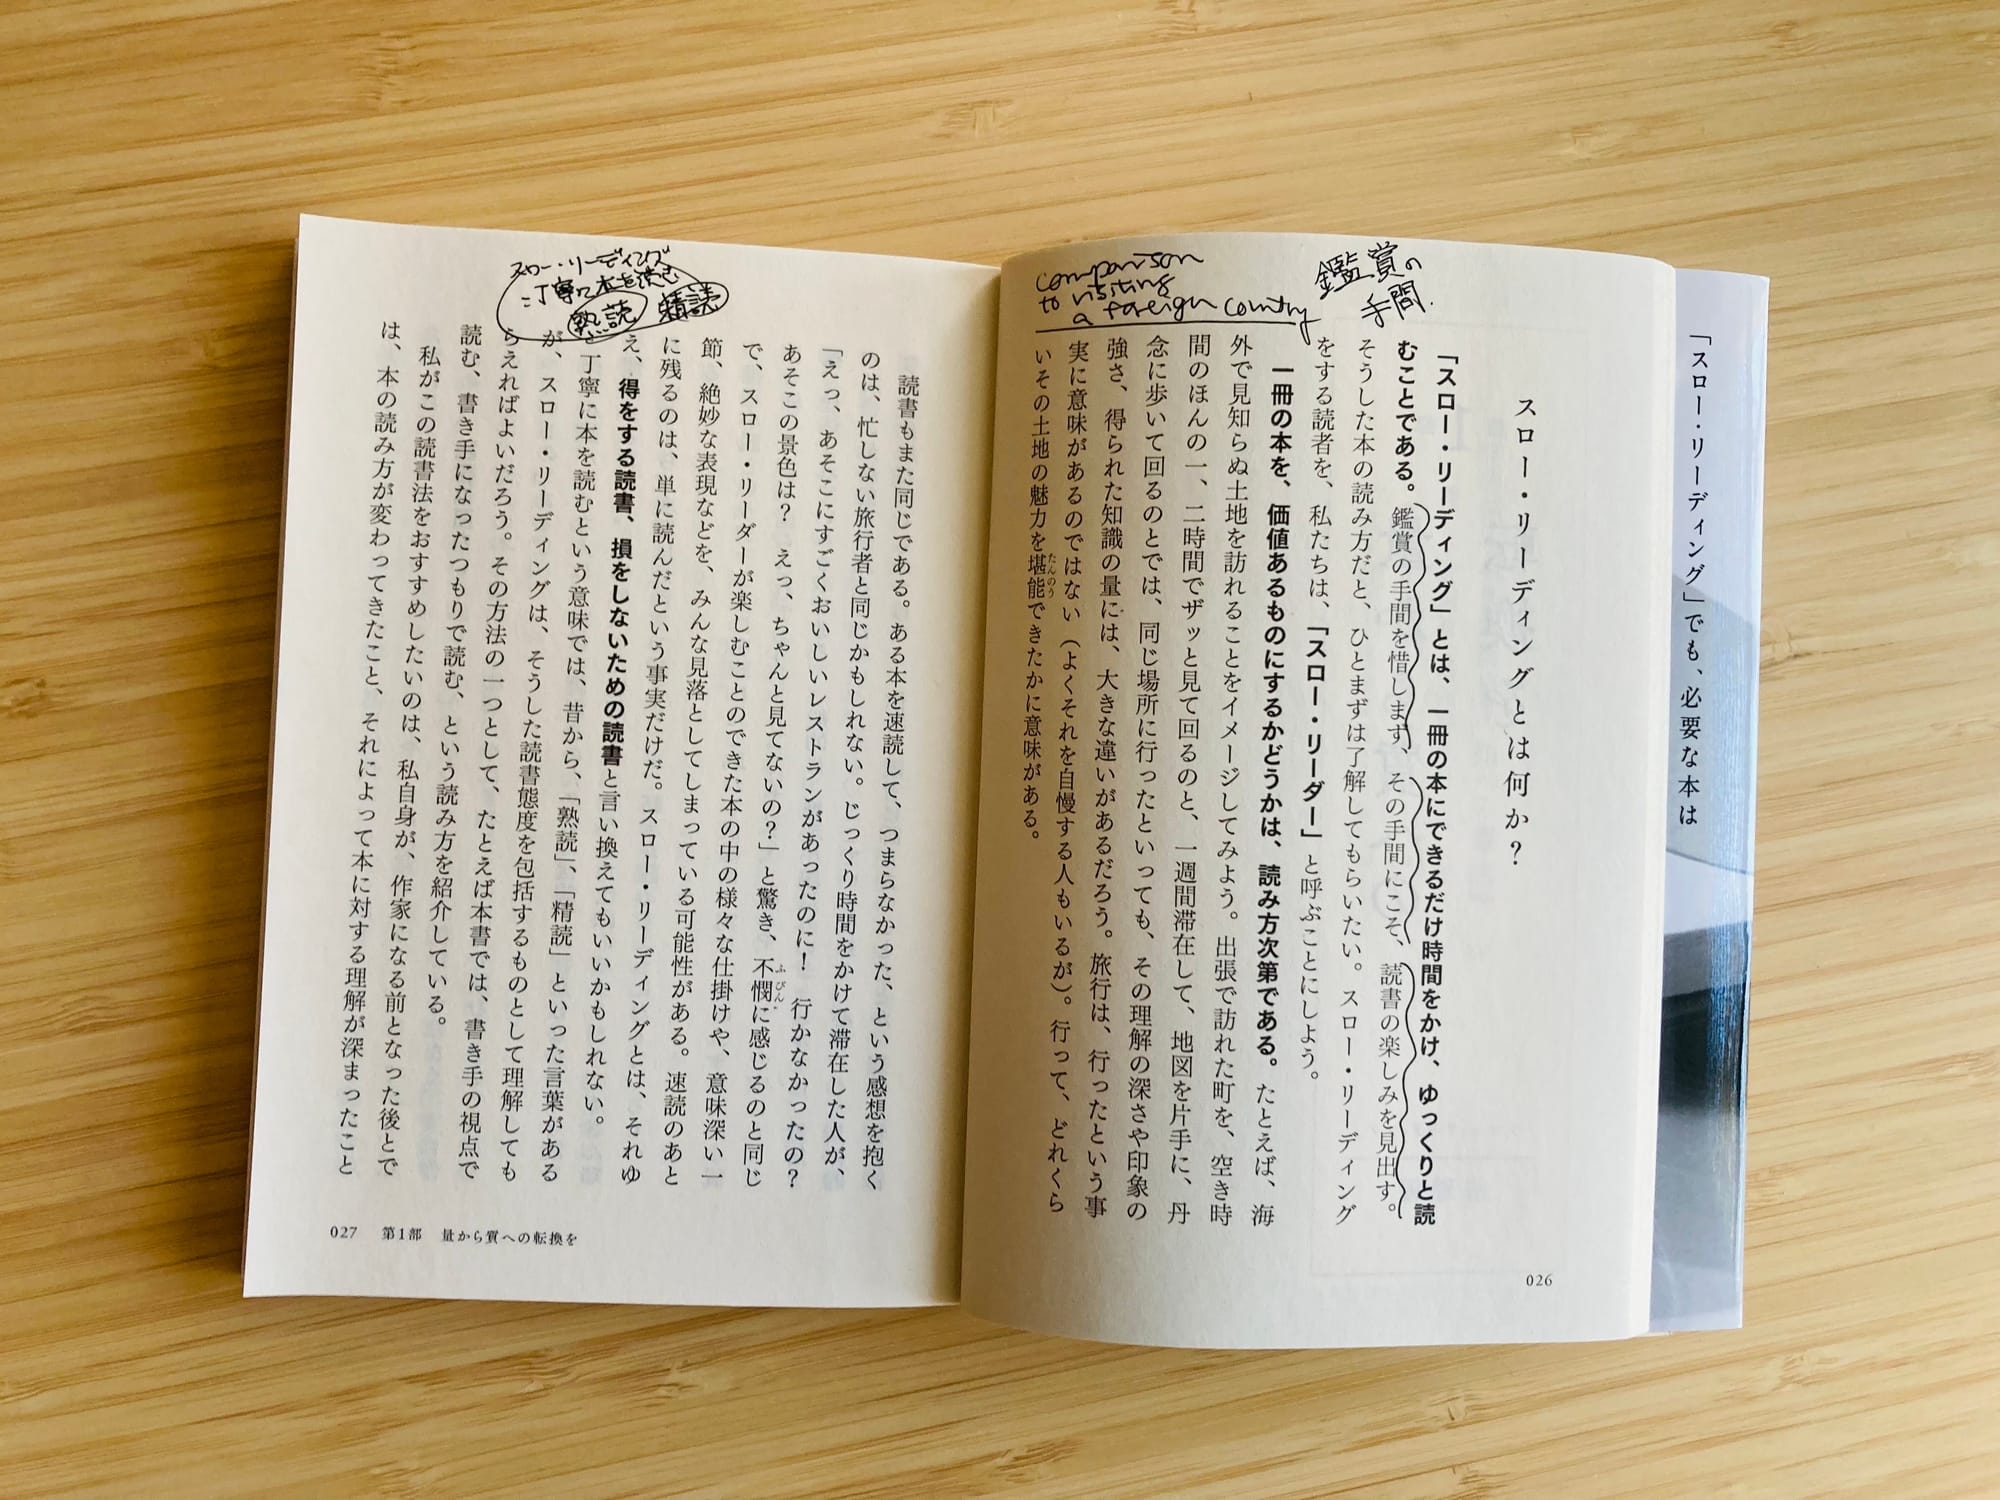 「スロー・リーディング」でも、必要な本は
鑑賞の
手間.
comparison
to visiting
a foreign country
スロー・リーディングとは何か？
「スロー・リーディング」とは、一冊の本にできるだけ時間をかけ、ゆっくりと読
むことである。鑑賞の手間を惜しまず、その手間にこそ、読書の楽しみを見出す。
そうした本の読み方だと、ひとまずは了解してもらいたい。スロー・リーディング
をする読者を、私たちは、「スロー・リーダー」と呼ぶことにしよう。
一冊の本を、価値あるものにするかどうかは、読み方次第である。たとえば、海
外で見知らぬ土地を訪れることをイメージしてみよう。出張で訪れた町を、空き時
間のほんの一、二時間でザッと見て回るのと、一週間滞在して、地図を片手に、丹
念に歩いて回るのとでは、同じ場所に行ったといっても、その理解の深さや印象の
強さ、得られた知識の量には、大きな違いがあるだろう。旅行は、行ったという事
実に意味があるのではない（よくそれを自慢する人もいるが）。行って、どれくら
いその土地の魅力を堪能できたかに意味がある。
たんのう
026
スロー・リーディング
:丁寧に本を読む
熟読 精読
読書もまた同じである。ある本を速読して、つまらなかった、という感想を抱く
のは、忙しない旅行者と同じかもしれない。じっくり時間をかけて滞在した人が、
「えっ、あそこにすごくおいしいレストランがあったのに！　行かなかったの？
あそこの景色は？　えっ、ちゃんと見てないの？」と驚き、不憫に感じるのと同じ
ふびん
で、スロー・リーダーが楽しむことのできた本の中の様々な仕掛けや、意味深い一
節、絶妙な表現などを、みんな見落としてしまっている可能性がある。速読のあと
に残るのは、単に読んだという事実だけだ。スロー・リーディングとは、それゆ
え、得をする読書、損をしないための読書と言い換えてもいいかもしれない。
丁寧に本を読むという意味では、昔から、「熟読」、「精読」といった言葉がある
が、スロー・リーディングは、そうした読書態度を包括するものとして理解しても
らえればよいだろう。その方法の一つとして、たとえば本書では、書き手の視点で
読む、書き手になったつもりで読む、という読み方を紹介している。
私がこの読書法をおすすめしたいのは、私自身が、作家になる前となった後とで
は、本の読み方が変わってきたこと、それによって本に対する理解が深まったこと
027　第1部　量から質への転換を